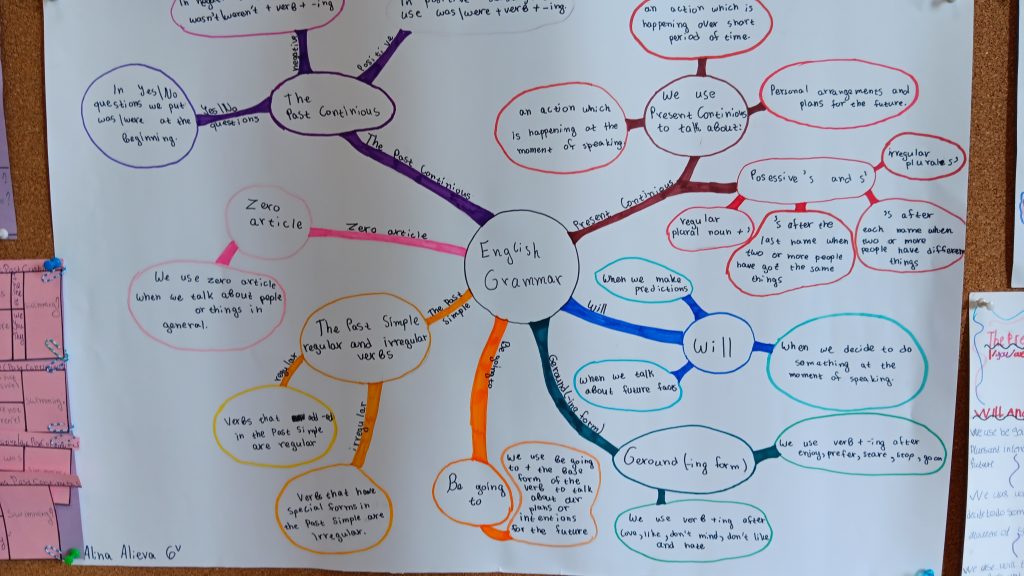 wasn't/weren't + verb + -ing
use was/were + verb + -ing.
negative
Positive
In Yes/No
questions we put
was/were at the
Beginning.
Yes/No
questions
The
Past Continious
The Past Continious
an action which is
happening over short
period of time.
an action which
is happening at the
moment of speaking
We use
Present Continious
to talk about:
Personal arrangements and
plans for the future.
Present Continious
Posessive 's and s'
irregular
plurale s'
regular
plural noun + '
's after the
last name when
two or more people
have got the same
things
's after
each name when
two or more
people have different
things
Zero
article
Zero article
We use zero article
when we talk about pople
or things in
general.
English
Grammar
The Past
Simple
The Past Simple
regular and irregular
verbs
regular
irregular
Verbs that add -ed
in the Past Simple
are regular
Verbs that have
special forms in
the Past Simple are
irregular.
Be going to
Be going
to
We use Be going
to + the Base
form of the
verb to talk
about our
plans or
intentions
for the future
Will
Will
When we make
predictions
When we talk
about future facs
When we decide to do
somathing at the
moment of speaking.
Geround (ing form)
Geround (-ing form)
We use verb + -ing after
enjoy, prefer, steare, stop, go on
We use verb +ing after
love, like, don't mind, don't like
and hate
Alina Alieva 6v
The Pre
Will And
We use be go
future